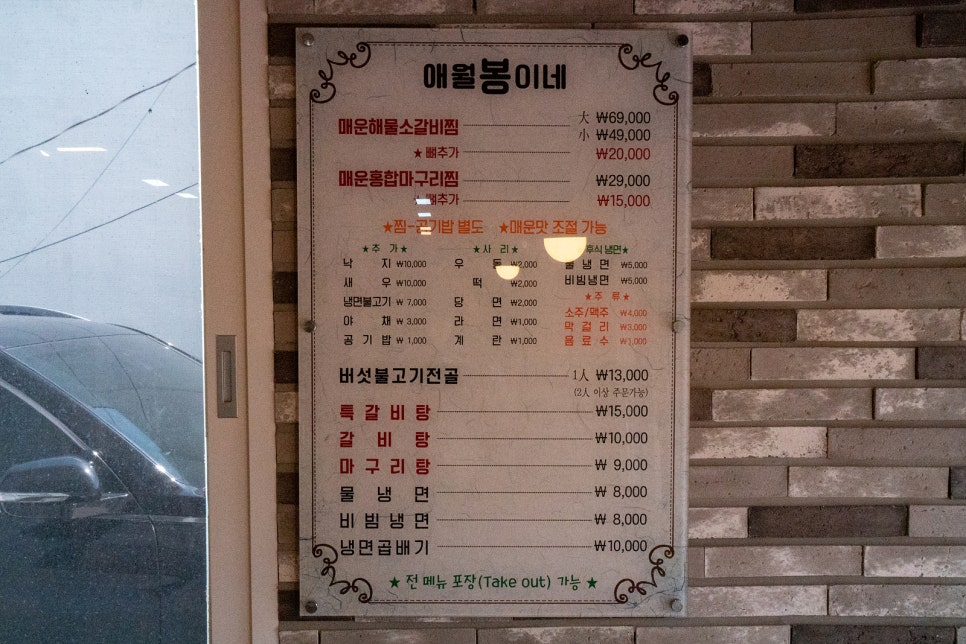 애월봉이네
매운해물소갈비찜 大 ₩69,000
小 ₩49,000
★ 뼈추가 ₩20,000
매운홍합마구리찜 ₩29,000
뼈추가 ₩15,000
★찜-공기밥 별도 ★매운맛 조절 가능
★추 가★ ★사 리★ 후식 냉면★
낙 지 ₩10,000 우 동 ₩2,000 물 냉 면 ₩5,000
새 우 ₩10,000 떡 ₩2,000 비빔냉면 ₩5,000
★주 류★
냉면불고기 ₩ 7,000 당 면 ₩2,000 소주/맥주 ₩4,000
야 채 ₩ 3,000 라 면 ₩1,000 막 걸 리 ₩3,000
공 기 밥 ₩ 1,000 계 란 ₩1,000 음 료 수 ₩1,000
버섯불고기전골 1人 ₩13,000
(2人 이상 주문가능)
특 갈 비 탕 ₩15,000
갈 비 탕 ₩10,000
마 구 리 탕 ₩ 9,000
물 냉 면 ₩ 8,000
비 빔 냉 면 ₩ 8,000
냉면곱배기 ₩10,000
★ 전 메뉴 포장(Take out) 가능 ★